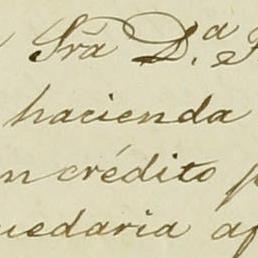 Sra D.a
hacienda
n crédito
uedaria